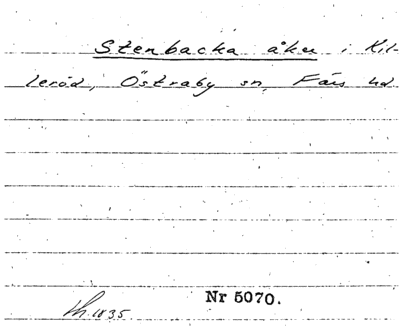 Stenbacka åker i Kil-
leröd, Östraby sn, Färs hd
Nr 5070.